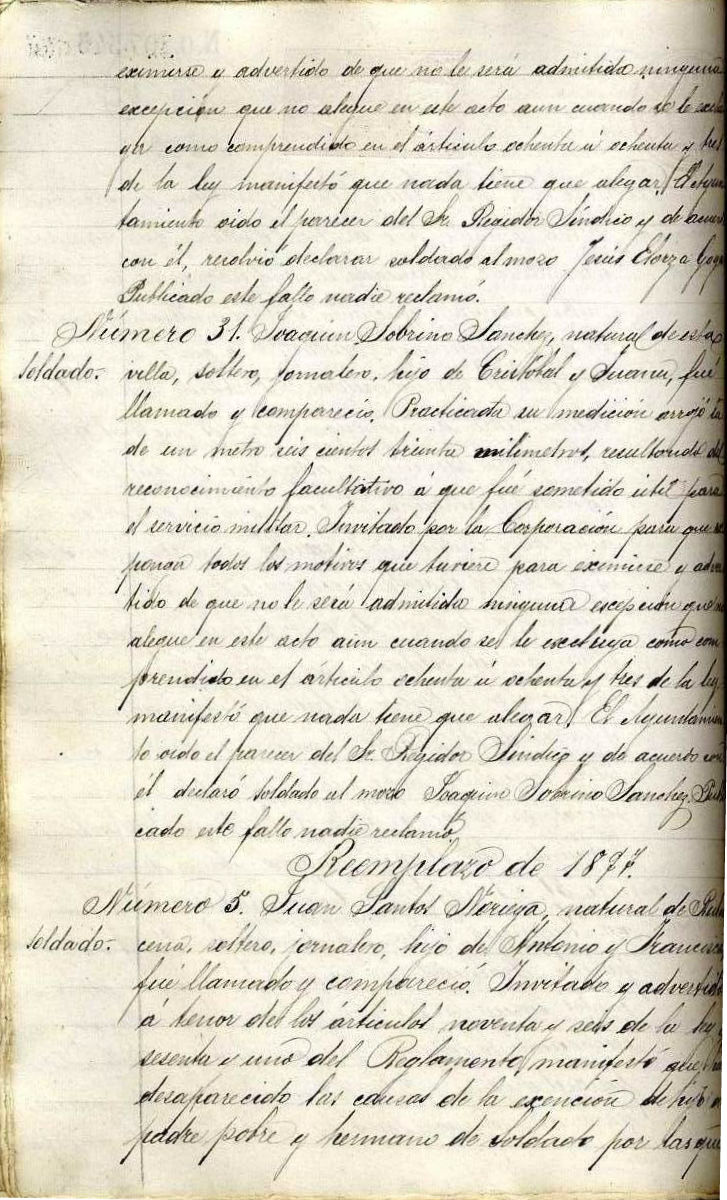 eximirse y advertido de que no le será admitida ninguna
excepción que no alegue en este acto aun cuando se le exclu
ya como comprendido en el árticulo ochenta ú ochenta y tres
de la ley manifestó que nada tiene que alegar. El Ayun
tamiento oido el parecer del Sr. Regidor Síndico y de acuerdo
con él, resolvió declarar soldado al mozo Jesús Elorza
Publicado este fallo nadie reclamó.
Número 31. Joaquin Sobrino Sanchez, natural de esta
soldado.- villa, soltero, jornalero, hijo de Cristóbal y Juana, fué
llamado y compareció. Practicada su medición arrojó la
de un metro seis cientos treinta milímetros, resultando del
reconocimiento facultativo á que fué sometido útil para
el servicio militar. Invitado por la Corporación para que ex
ponga todos los motivos que tuviere para eximirse y adver
tido de que no le será admitida ninguna escepción que no
alegue en este acto aún cuando se le escluya como com
prendido en el árticulo ochenta ú ochenta y tres de la ley
manifestó que nada tiene que alegar. El Ayuntamien
to oido el parecer del Sr. Regidor Síndico y de acuerdo con
él declaró soldado al mozo Joaquin Sobrino Sanchez. Publi
cado este fallo nadie reclamó.
Reemplazo de 1897.
Número 5. Juan Santos Noriega, natural de
soldado.- cena, soltero, jornalero, hijo de Antonio y Francisca
fué llamado y compareció. Invitado y advertido
á tenor de los árticulos noventa y seis de la ley
sesenta y uno del Reglamento, manifestó que han
desaparecido las causas de la exención de hijo de
padre pobre y hermano de soldado por las que